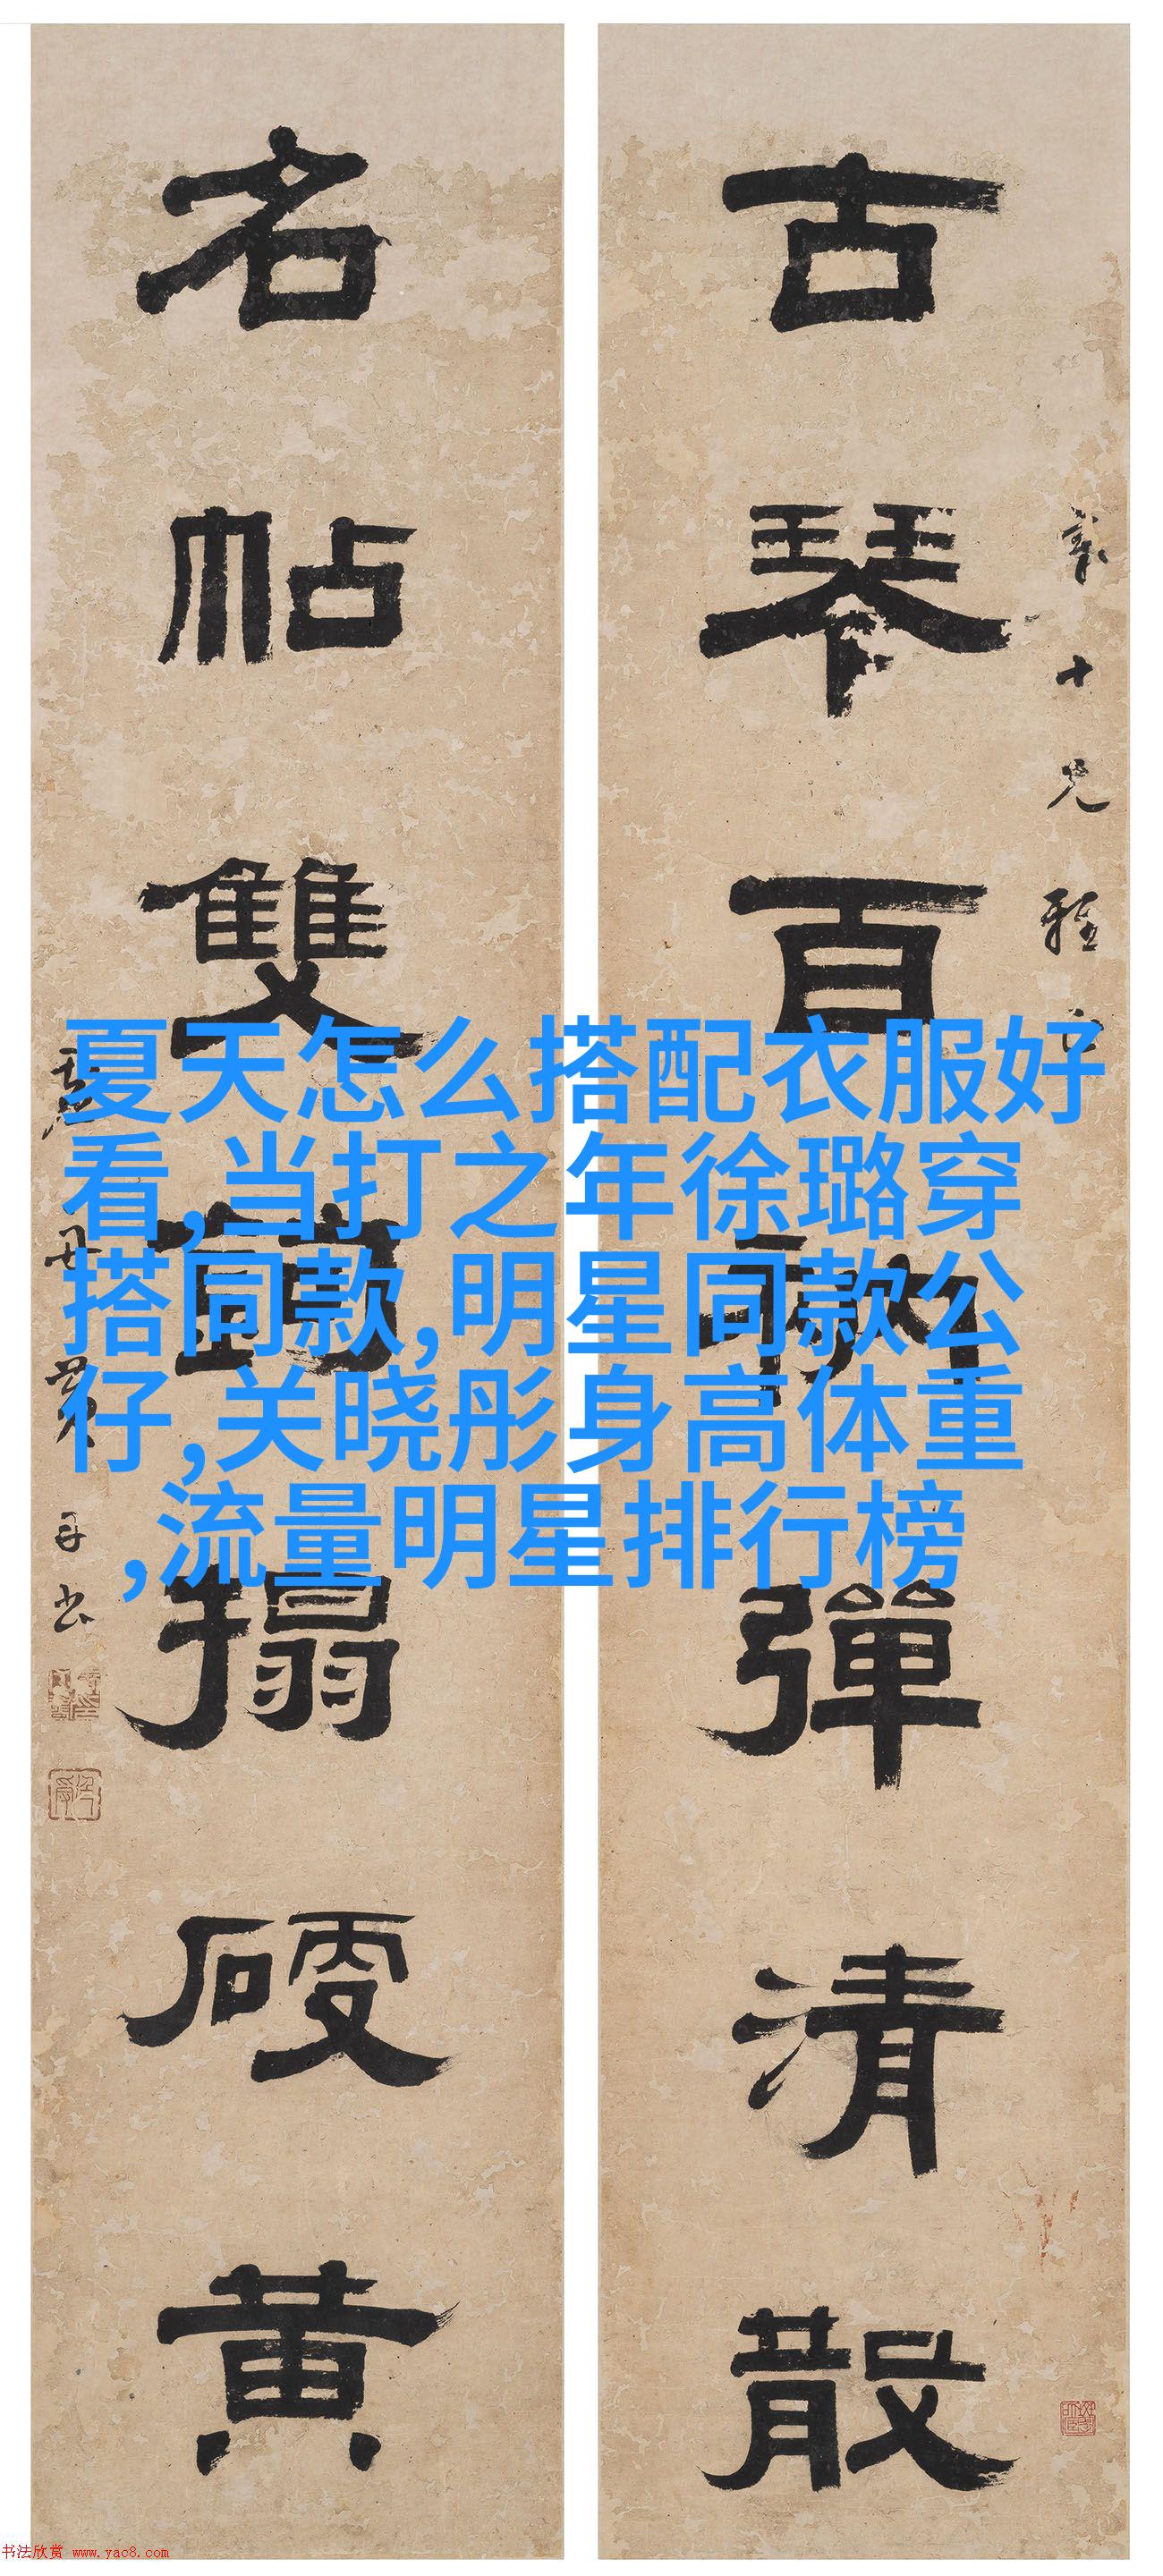 夏天怎么搭配衣服好
看,当打之年徐璐穿
搭同款,明星同款公
仔,关晓彤身高体重
,流量明星排行榜
古琴百衲彈清散
名帖雙鉤搨硬黄
十兄
書法欣赏 www.yac8.com